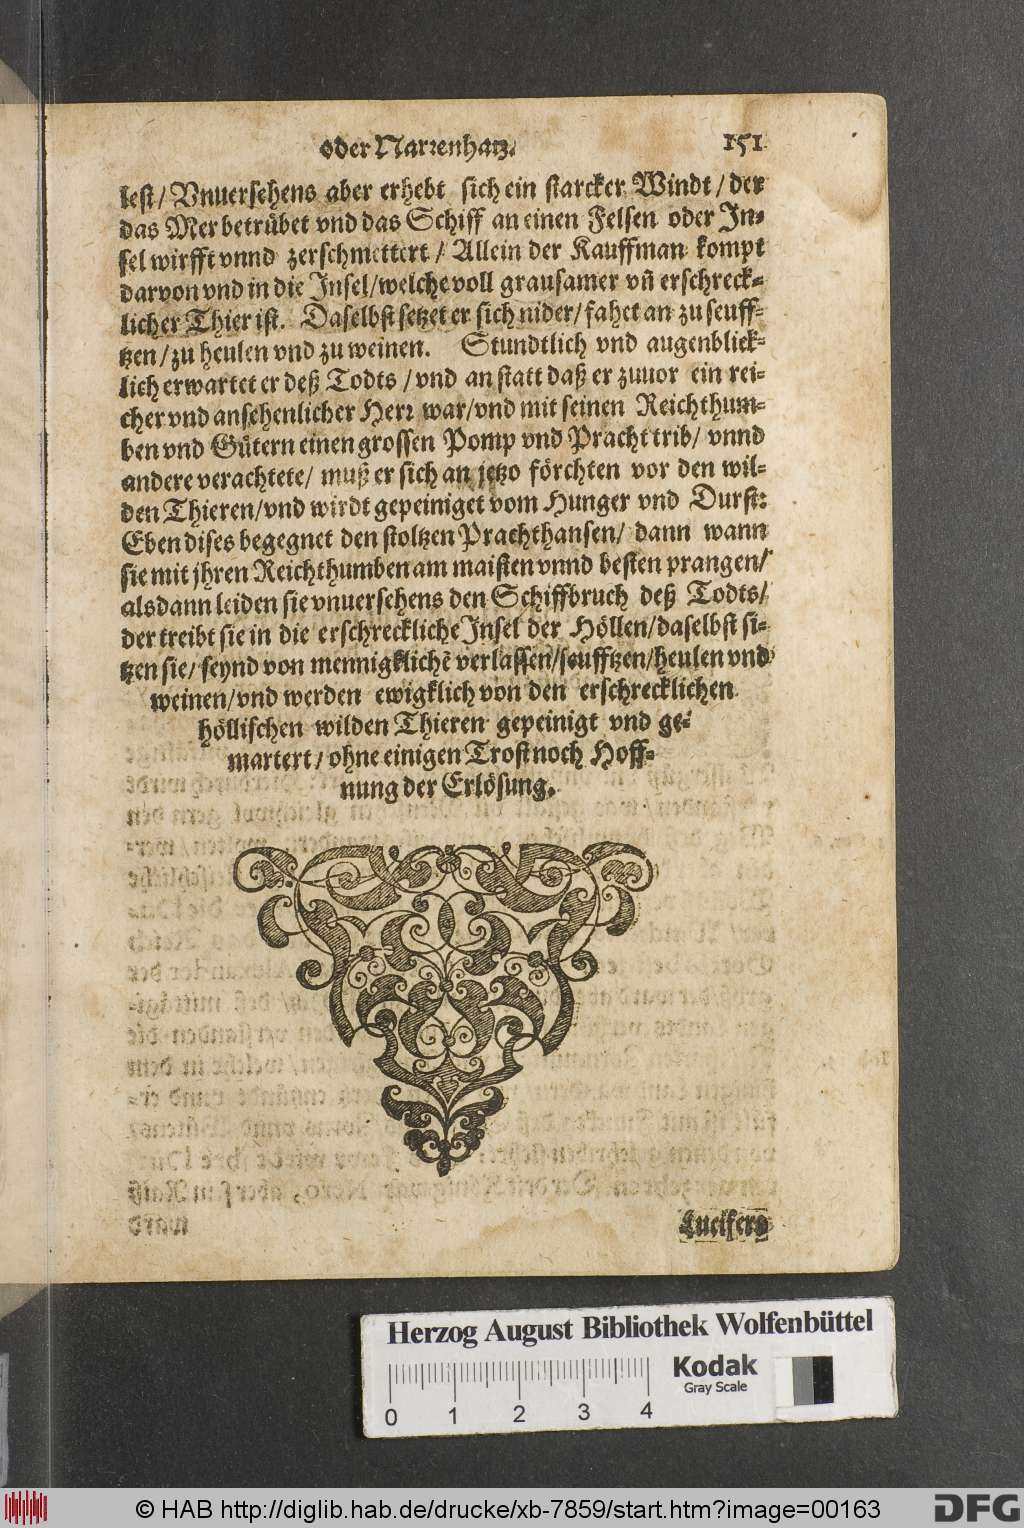 oder Narrenhatz. 151
lest / Vnuersehens aber erhebt sich ein starcker Windt / der
das Mer betrübet vnd das Schiff an einen Felsen oder In-
sel wirfft vnnd zerschmettert / Allein der Kauffman kompt
darvon vnd in die Insel / welche voll grausamer vñ erschreck-
licher Thier ist. Daselbst setzet er sich nider / fahet an zu seuff-
tzen / zu heulen vnd zu weinen. Stundtlich vnd augenblick-
lich erwartet er deß Todts / vnd an statt daß er zuuor ein rei-
cher vnd ansehenlicher Herr war / vnd mit seinen Reichthum-
ben vnd Gütern einen grossen Pomp vnd Pracht trib / vnnd
andere verachtete / muß er sich an jetzo förchten vor den wil-
den Thieren / vnd wirdt gepeiniget vom Hunger vnd Durst:
Eben dises begegnet den stoltzen Prachthansen / dann wann
sie mit jhren Reichthumben am maisten vnnd besten prangen /
alsdann leiden sie vnuersehens den Schiffbruch deß Todts /
der treibt sie in die erschreckliche Insel der Höllen / daselbst si-
tzen sie / seynd von mennigklichẽ verlassen / seufftzen / heulen vnd
weinen / vnd werden ewigklich von den erschrecklichen
höllischen wilden Thieren gepeinigt vnd ge-
martert / ohne einigen Trost noch Hoff-
nung der Erlösung.
Lucifers
Herzog August Bibliothek Wolfenbüttel
Kodak
Gray Scale
0 1 2 3 4
© HAB http://diglib.hab.de/drucke/xb-7859/start.htm?image=00163
DFG